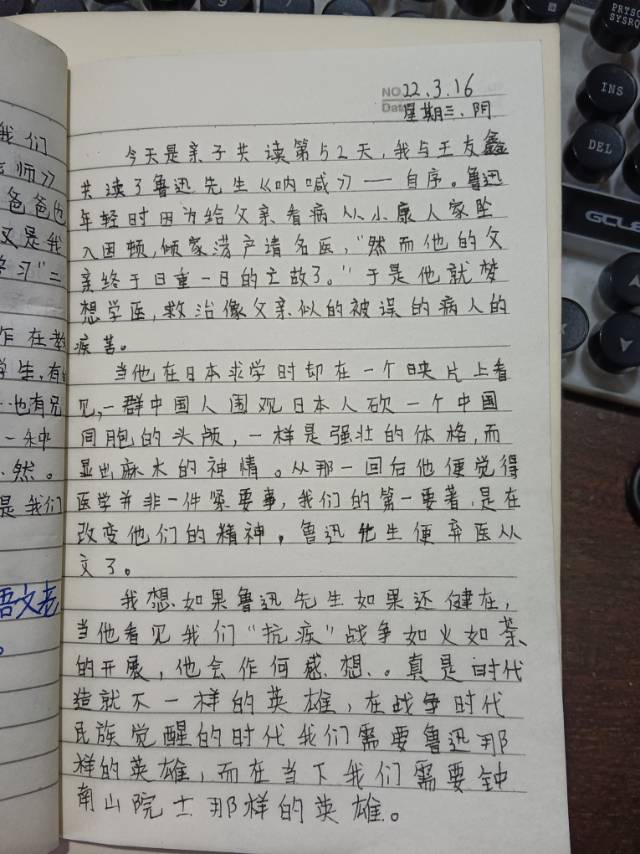 我们
师》
爸爸也
又是我
学习"二
作在教
学生,有
也有兄
一种
然。
是我们
语文老
。
NO 22.3.16
Date 星期三.阴
今天是亲子共读第52天,我与王友鑫
共读了鲁迅先生《呐喊》——自序。鲁迅
年轻时因为给父亲看病从小康人家坠
入困顿,倾家荡产请名医,"然而他的父
亲终于日重一日的亡故了。"于是他就梦
想学医,救治像父亲似的被误的病人的
疾苦。
当他在日本求学时却在一个映片上看
见,一群中国人围观日本人砍一个中国
同胞的头颅,一样是强壮的体格,而
显出麻木的神情。从那一回后他便觉得
医学并非一件紧要事,我们的第一要著,是在
改变他们的精神。鲁迅先生便弃医从
文了。
我想如果鲁迅先生如果还健在,
当他看见我们"抗疾"战争如火如荼
的开展,他会作何感想。真是时代
造就不一样的英雄,在战争时代
民族觉醒的时代我们需要鲁迅那
样的英雄,而在当下我们需要钟
南山院士那样的英雄。
PRTSC
SYSRQ
INS
DEL